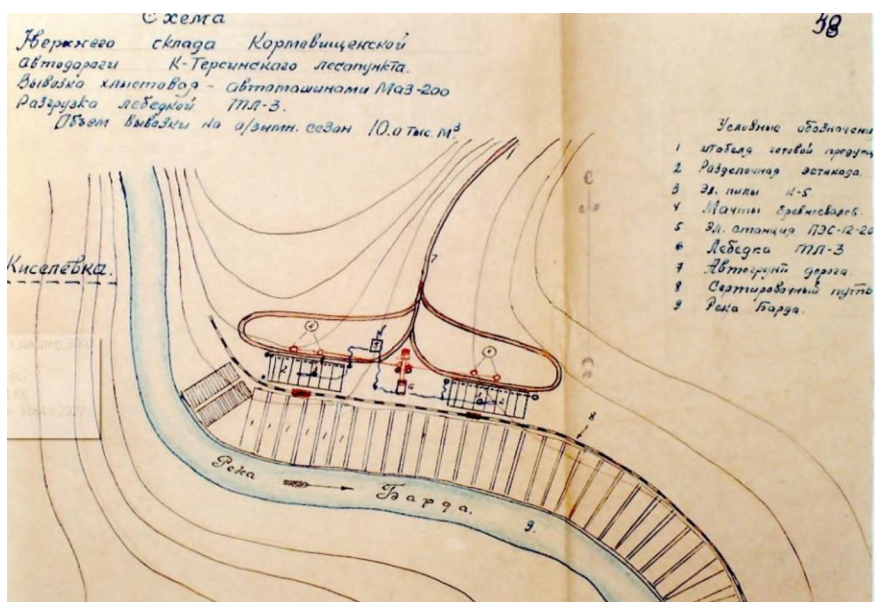 Схема
Уверхнего склада Кормовищенской
автодороги К-Терсинского лесопункта.
Вывозка хлыстовая - автомашинами МАЗ-200
Разгрузка лебедкой ТЛ-3.
Объем вывозки на о/зимн. сезон 10.0 тыс. м³
38
Условные обозначени
1 штабеля готовой продукц
2 Разделочная эстакада.
3 Эл. пилы К-5
4 Мачты бревносвалов.
5 Эл. станция ПЭС-12-20
6 Лебедка ТЛ-3
7 Автогрунт дорога.
8 Сортировочный путь
9 Река Барда.
Киселевка.
7
4
4
6
8
Река Барда.
9.